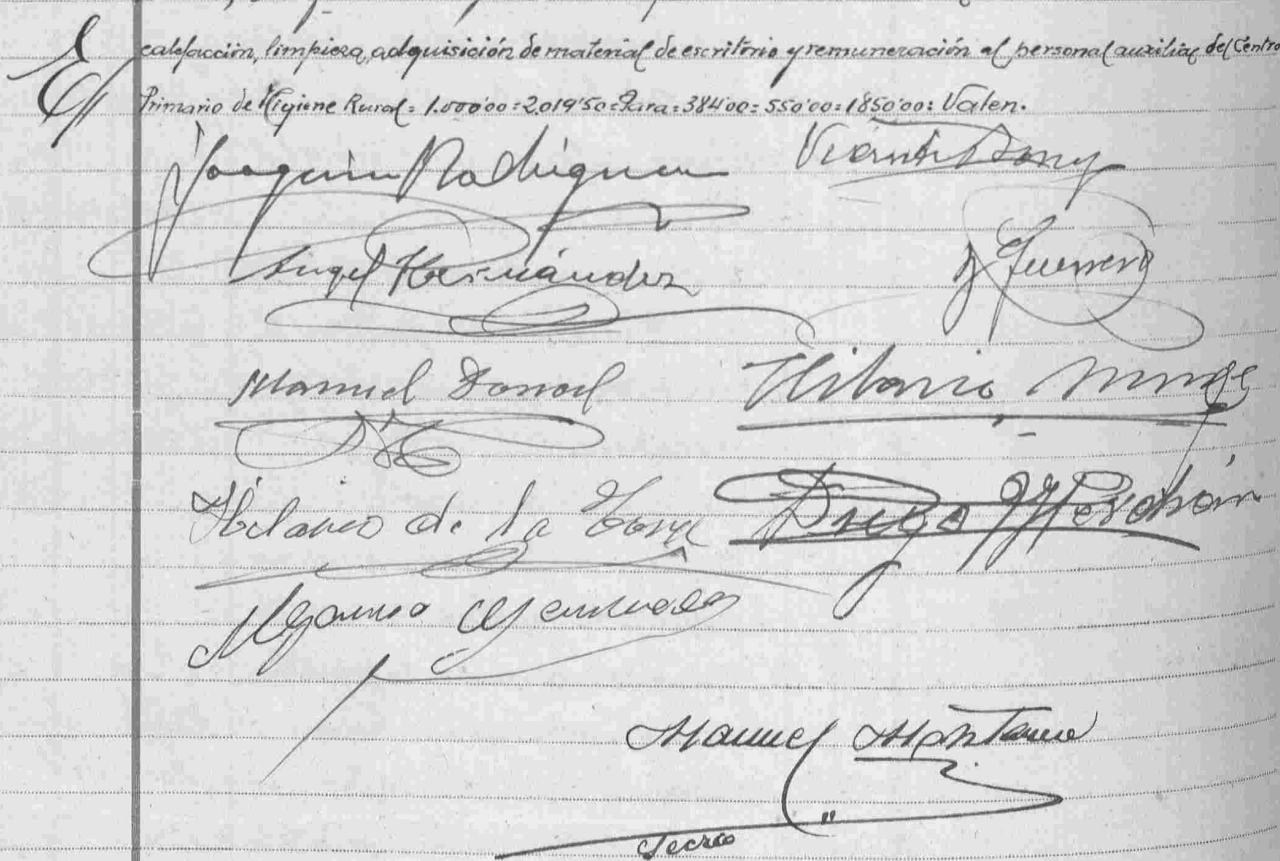 calefacción, limpieza, adquisición de material de escritorio y remuneración al personal auxiliar del Centro
Primario de Higiene Rural = 1.000'00 = 2.019'50 = Para = 384'00 = 550'00 = 1850'00: Valen.
Joaquin Rodriguez
Vicente
Angel Hernández
Guerrero
Manuel
Hilario
Hilario de la Torre
Diego Merchán
Manuel
Secrio